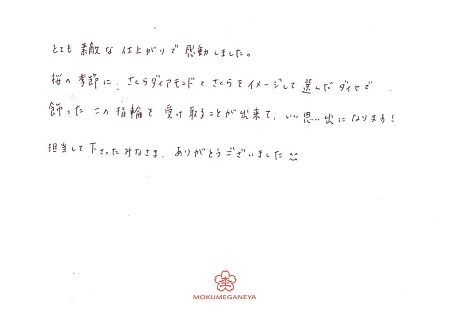 とても素敵な仕上がりで感動しました。
桜の季節に、さくらダイアモンドとさくらをイメージして選んだダイヤで
飾ったこの指輪を受け取ることが出来て、いい思い出になります！
担当して下さったみなさま、ありがとうございました
杢
MOKUMEGANEYA